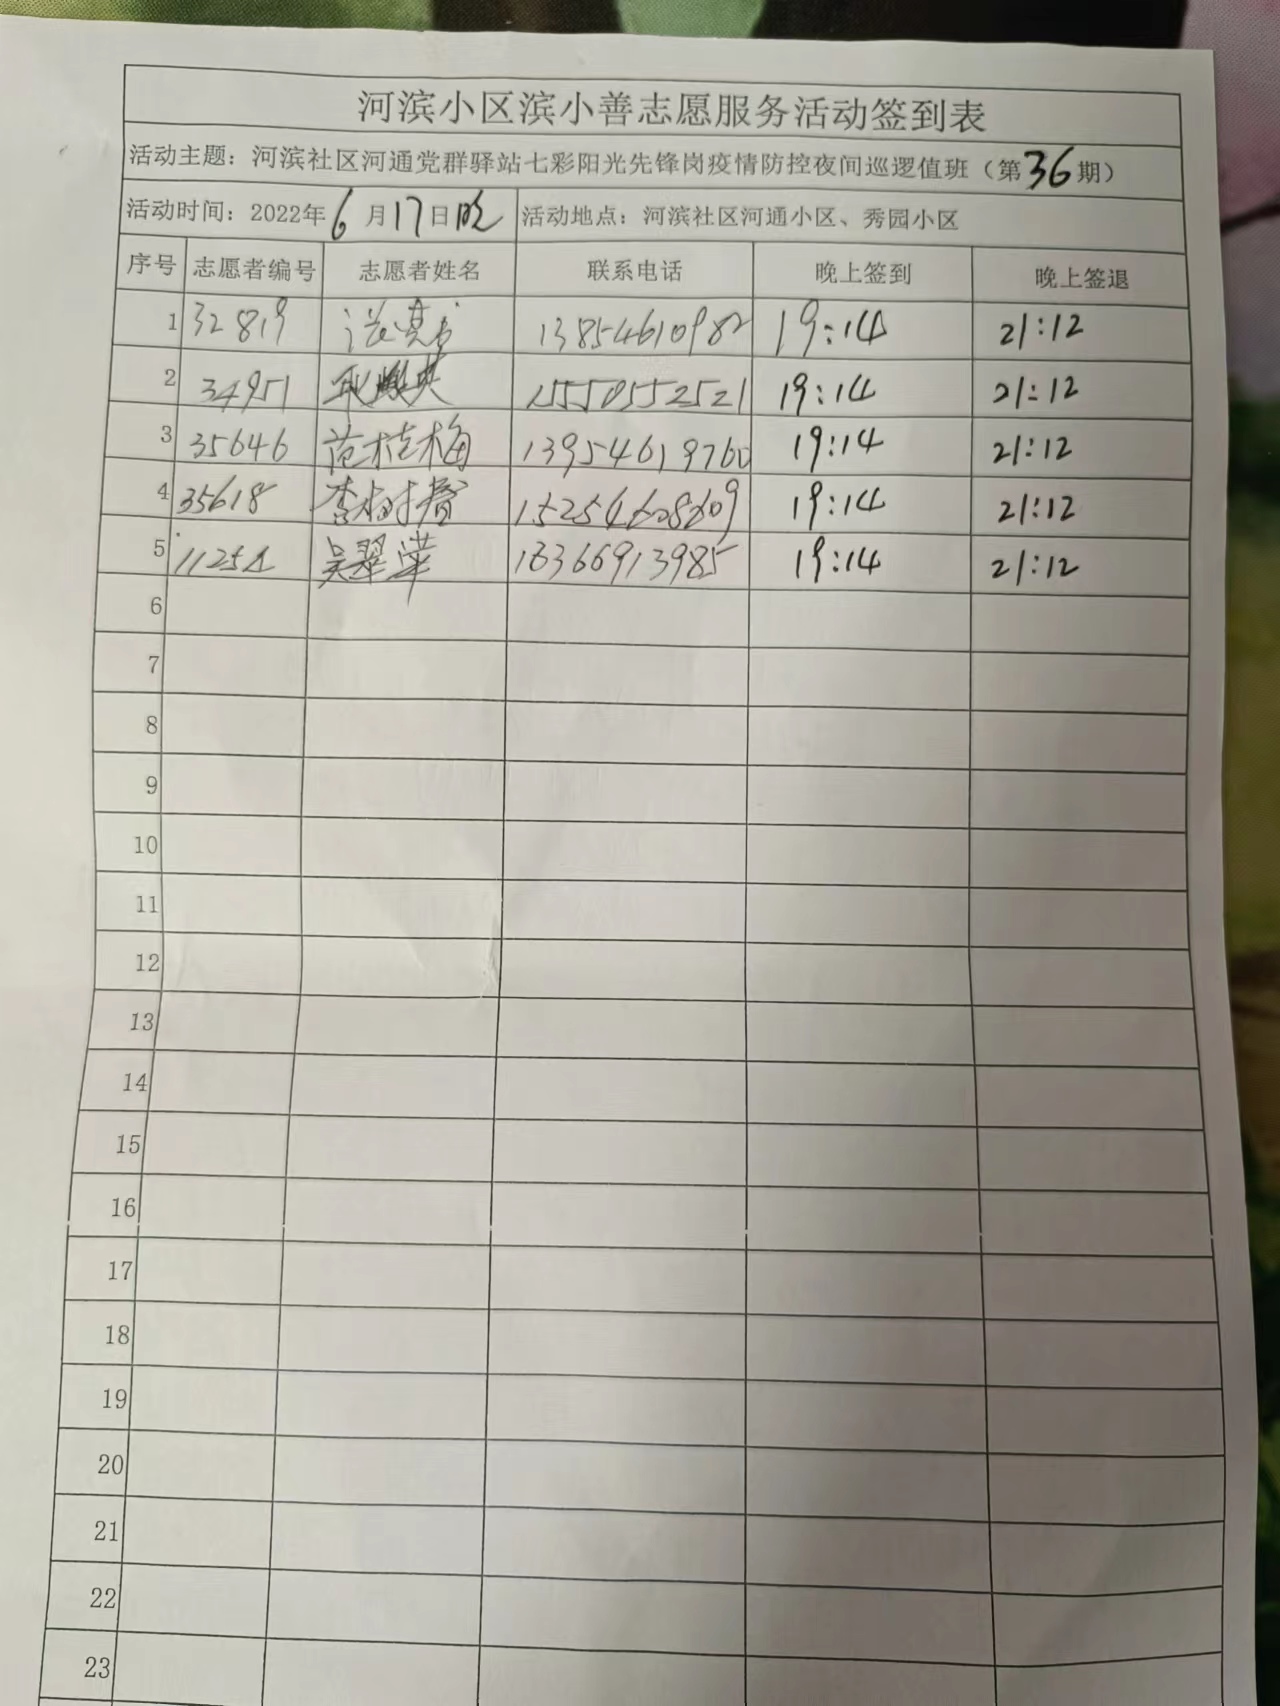 河滨小区滨小善志愿服务活动签到表
活动主题：河滨社区河通党群驿站七彩阳光先锋岗疫情防控夜间巡逻值班（第36期）
活动时间：2022年6月17日晚 活动地点：河滨社区河通小区、秀园小区
序号 志愿者编号 志愿者姓名 联系电话 晚上签到 晚上签退
1 32819 13854610982 19:14 21:12
2 34951 15550552521 19:14 21:12
3 35646 范桂梅 13954619760 19:14 21:12
4 35618 李树 15254628609 19:14 21:12
5 11254 吴翠萍 18366913985 19:14 21:12
6
7
8
9
10
11
12
13
14
15
16
17
18
19
20
21
22
23